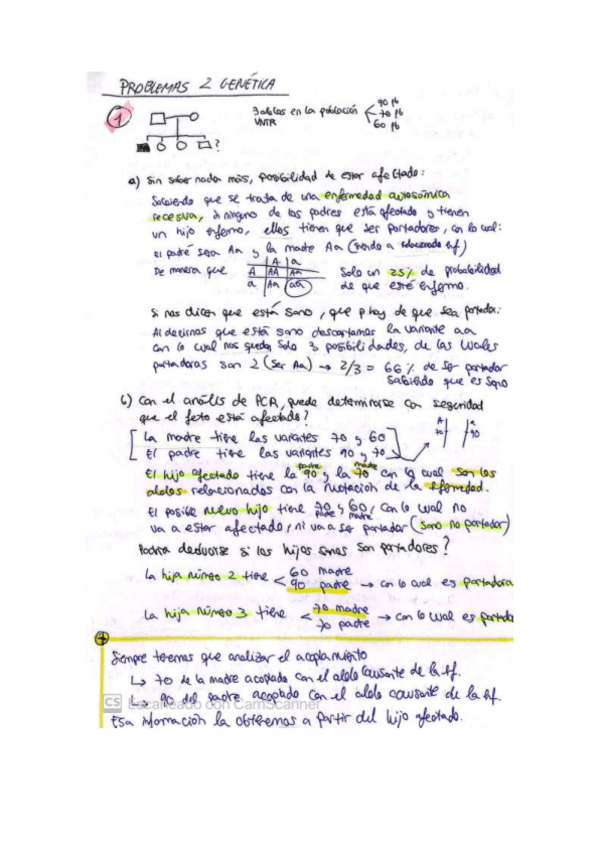 PROBLEMAS 2 GENÉTICA
1
3 alelos en la población
VNTR
90 pb
70 pb
60 pb
?
a) Sin saber nada más, posibilidad de estar afectado:
Sabiendo que se trata de una enfermedad autosómica
recesiva, si ninguno de los padres está afectado y tienen
un hijo enfermo, ellos tienen que ser portadores, con lo cual:
El padre sera Aa y la madre Aa (siendo a relacionado enf)
De manera que
A a
A AA Aa
a Aa aa
Solo un 25% de probabilidad
de que esté enfermo.
Si nos dicen que está sano, que p hay de que sea portador:
Al decirnos que está sano descartamos la variante aa
con lo cual nos queda solo 3 posibilidades, de las cuales
portadoras son 2 (ser Aa) → 2/3 = 66% de ser portador
sabiendo que es sano
b) Con el análisis de PCR, puede determinarse con seguridad
que el feto está afectado?
La madre tiene las variantes 70 y 60
El padre tiene las variantes 90 y 70
A a
70 90
padre madre
El hijo afectado tiene la 90 y la 70 con lo cual son los
alelos relacionados con la mutación de la enfermedad.
El posible nuevo hijo tiene 70 y 60, con lo cual no
padre madre
va a estar afectado, ni va a ser portador (sano no portador)
Podría deducirse si los hijos sanos son portadores?
La hija número 2 tiene < 60 madre
90 padre → con lo cual es portadora
La hija número 3 tiene < 70 madre
70 padre → con lo cual es portado
Siempre tenemos que analizar el acoplamiento
↳ 70 de la madre acoplado con el alelo causante de la enf.
↳ 90 del padre acoplado con el alelo causante de la enf.
CS Escaneado con CamScanner
Esa información la obtenemos a partir del hijo afectado.